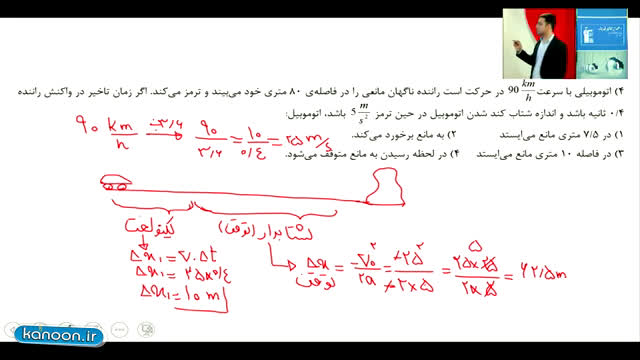 ۴) اتومبیلی با سرعت 90 km/h در حرکت است راننده ناگهان مانعی را در فاصله‌ی ۸۰ متری خود می‌بیند و ترمز می‌کند. اگر زمان تاخیر در واکنش راننده
۰/۴ ثانیه باشد و اندازه شتاب کند شدن اتومبیل در حین ترمز 5 m/s² باشد، اتومبیل:
۱) در ۷/۵ متری مانع می‌ایستد ۲) به مانع برخورد می‌کند.
۳) در فاصله ۱۰ متری مانع می‌ایستد ۴) در لحظه رسیدن به مانع متوقف می‌شود.
۹۰ km/h ÷۳/۶ → ۹۰/۳/۶ = ۱۰/۰/۴ = ۲۵ m/s
یکنواخت شتابدار (توقف)
Δx₁ = V₀Δt
Δx₁ = ۲۵×۰/۴
Δx₁ = ۱۰ m
Δx توقف = -V₀²/2a = -۲۵²/-۲×۵ = ۲۵×۲۵/۲×۵ = ۶۲/۵ m
kanoon.ir